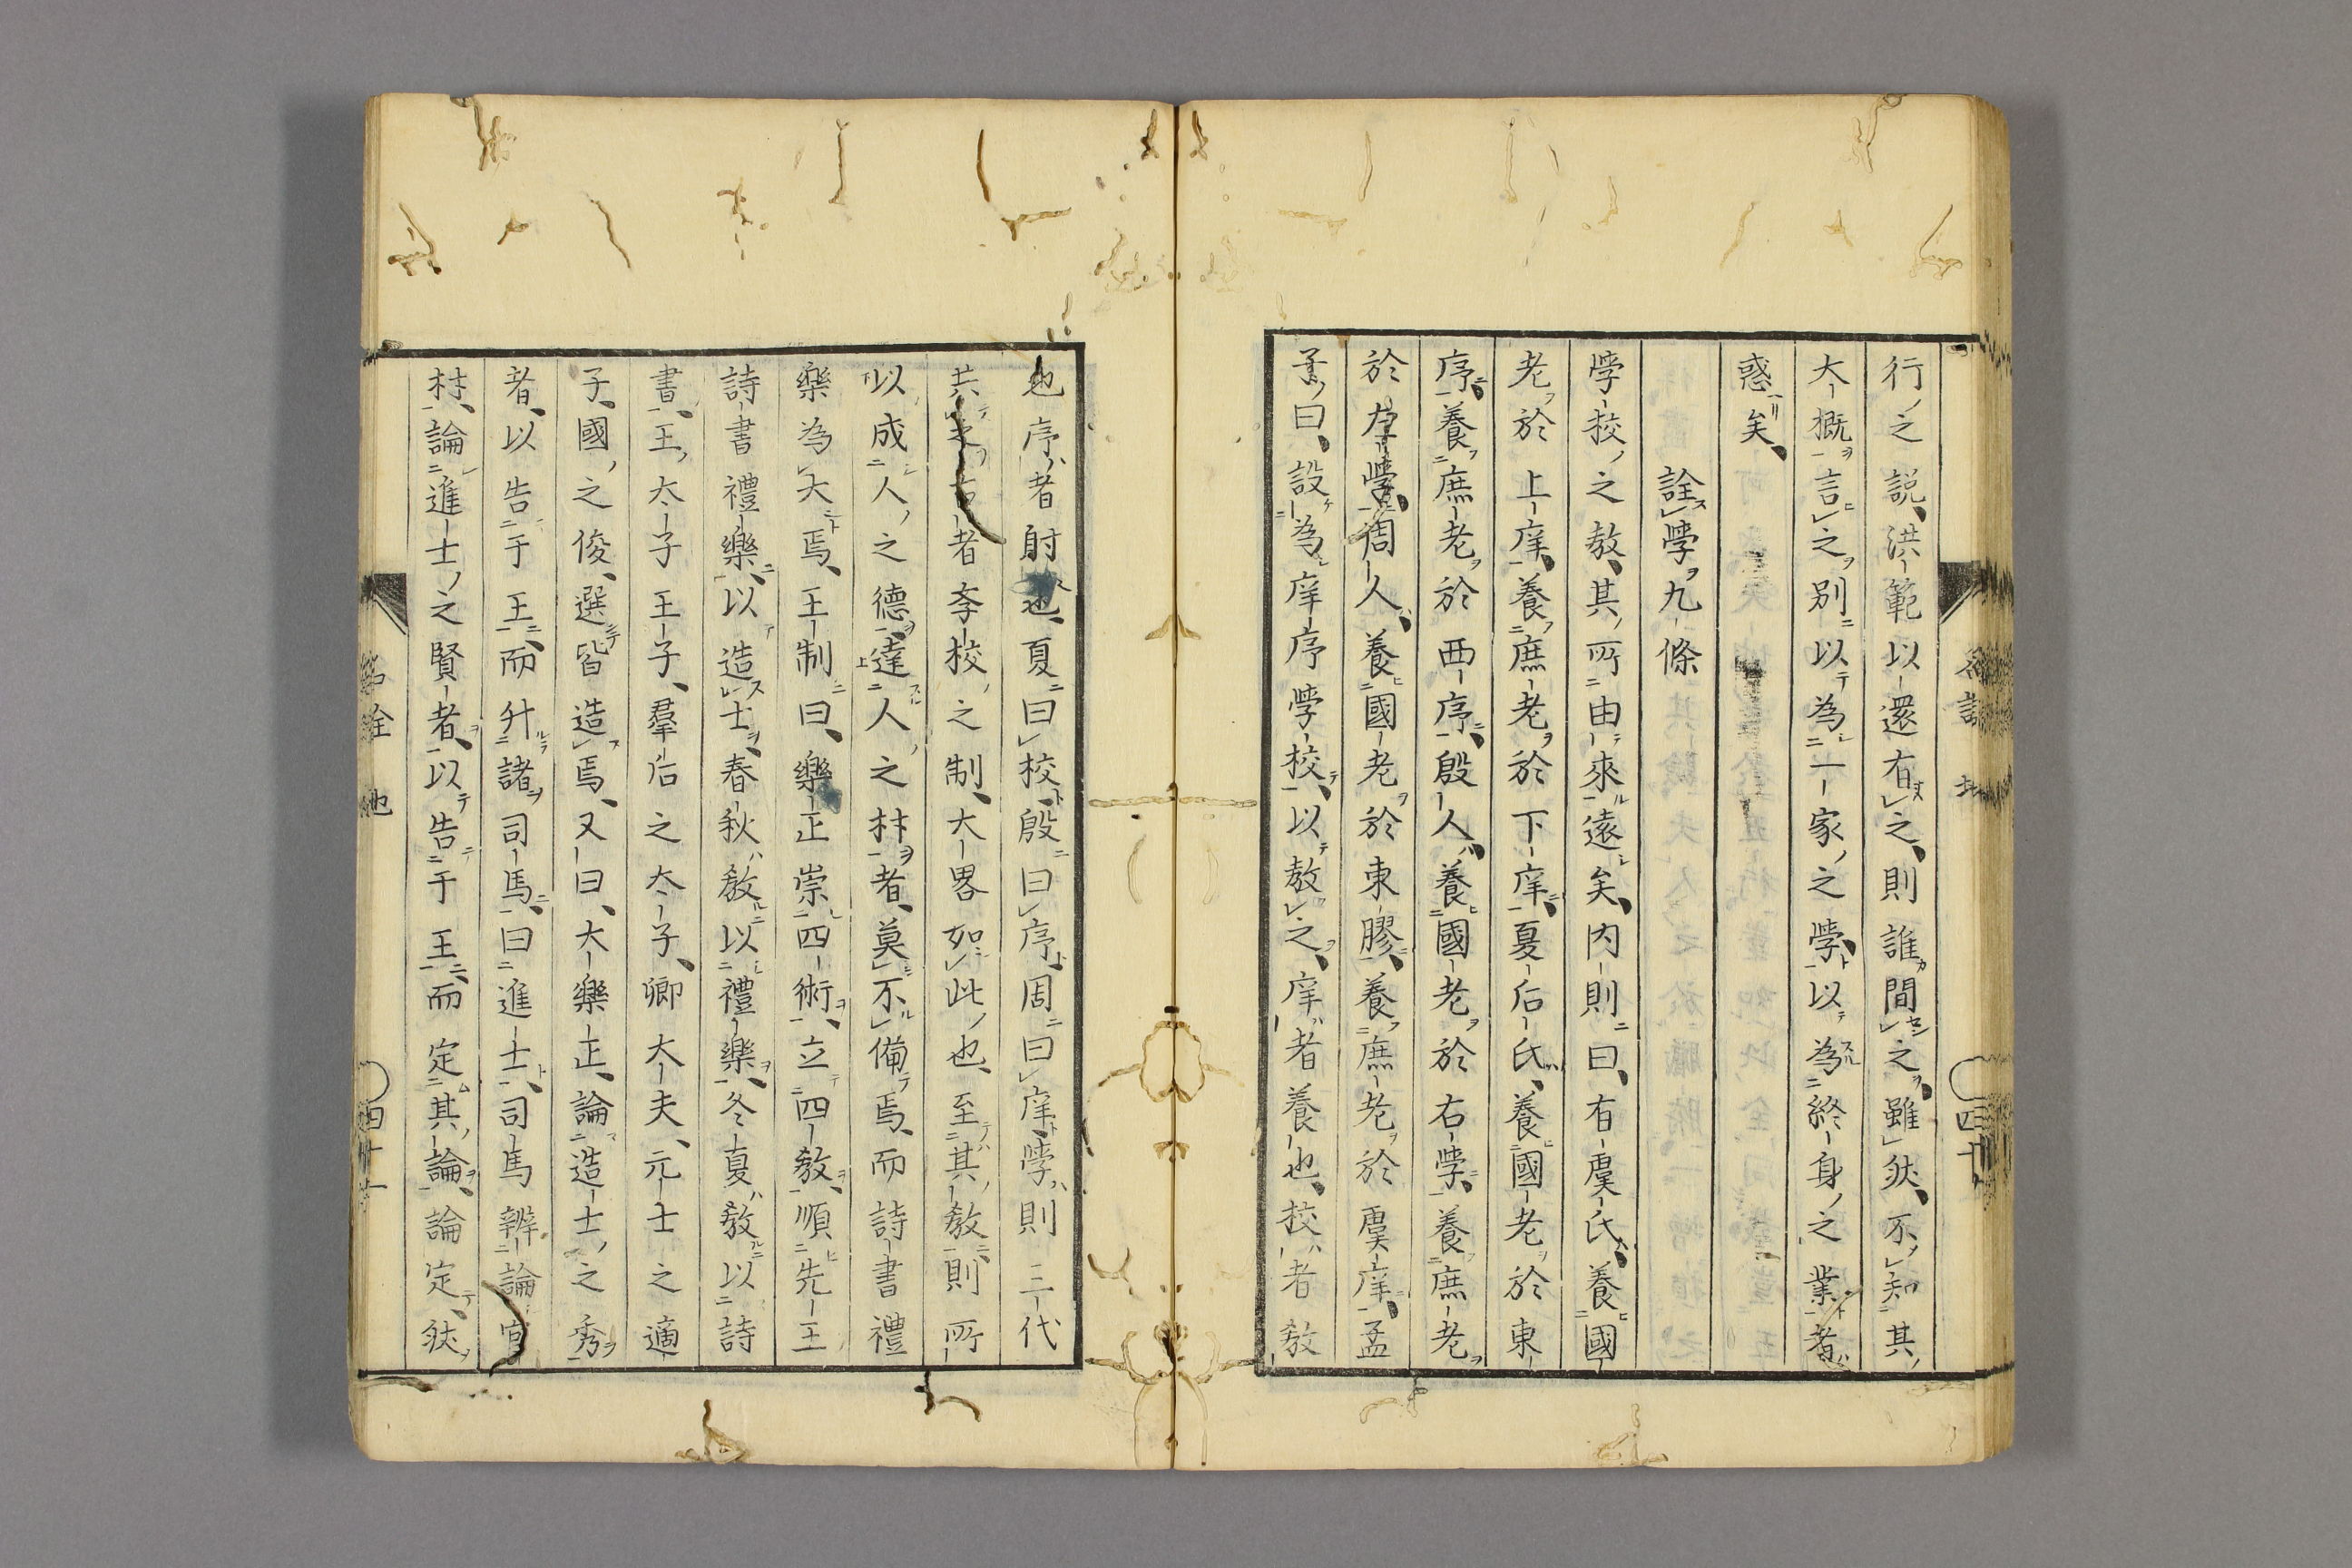 行之説洪範以還有之則誰間之雖然不知其
大概言之別以為一家之學以為終身之業者
惑矣
詮學九條
學校之敎其所由來遠矣内則曰有虞氏養國
老於上庠養庶老於下庠夏后氏養國老於東
序養庶老於西序殷人養國老於右學養庶老
於左學周人養國老於東膠養庶老於虞庠孟
子曰設為庠序學校以敎之庠者養也校者敎
也序者射也夏曰校殷曰序周曰庠學則三代
共之古者李校之制大畧如此也至其敎則所
以成人之德達人之材者莫不備焉而詩書禮
樂為大焉王制曰樂正崇四術立四敎順先王
詩書禮樂以造士春秋敎以禮樂冬夏敎以詩
書王太子王子羣后之太子卿大夫元士之適
子國之俊選皆造焉又曰大樂正論造士之秀
者以告于王而升諸司馬曰進士司馬辨論官
材論進士之賢者以告于王而定其論論定然
名詮 地 四十一